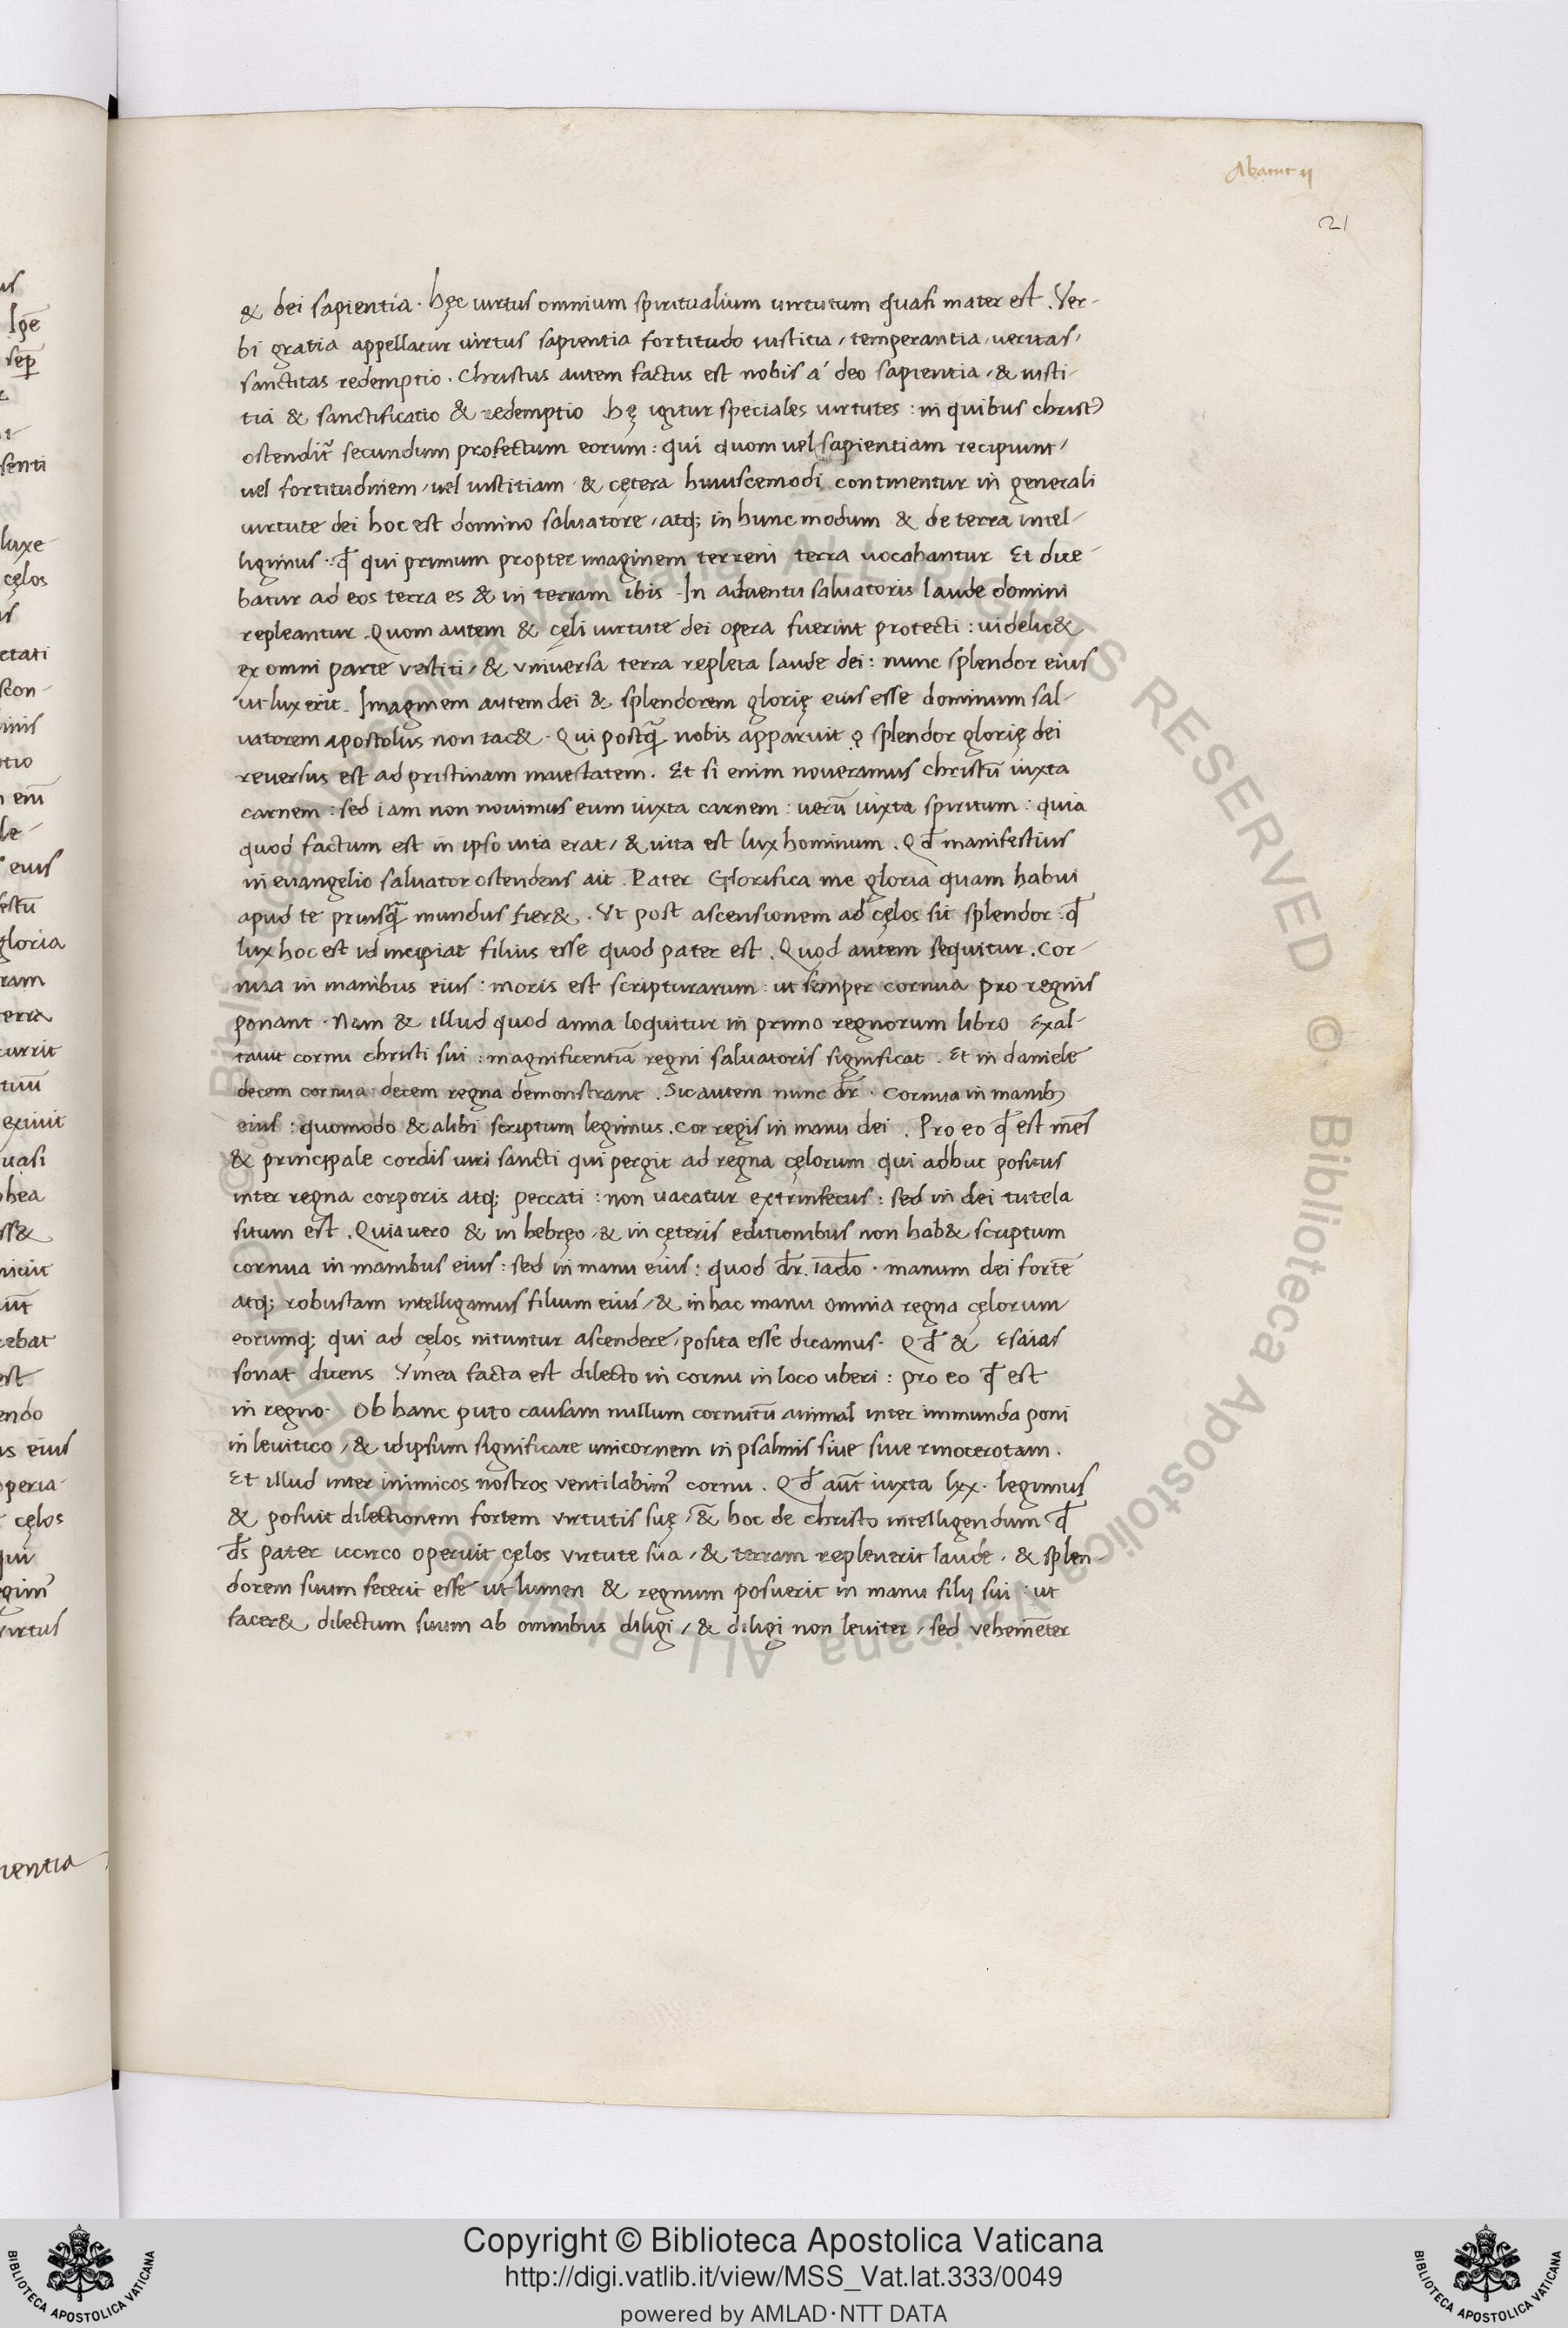 Abacuc ij
21
& dei sapientia. hęc uirtus omnium spiritualium uirtutum quasi mater est. Ver-
bi gratia appellatur uirtus sapientia fortitudo iustitia, temperantia, ueritas,
sanctitas redemptio. Christus autem factus est nobis á deo sapientia, & iusti-
tia & sanctificatio & redemptio hę igitur speciales uirtutes: in quibus christꝰ
ostendit᷑ secundum profectum eorum: qui quom uel sapientiam recipiunt,
uel fortitudinem, uel iustitiam & cętera huiuscemodi continentur in generali
uirtute dei hoc est domino saluatore, atq; in hunc modum & de terra intel-
ligimus. qđ qui primum propter imaginem terreni terra uocabantur Et dice-
batur ad eos terra es & in terram ibis. In aduentu saluatoris laude domini
repleantur. Quom autem & cęli uirtute dei opera fuerint protecti: uidelic&
ex omni parte vestiti, & vniuersa terra repleta laude dei: nunc splendor eius
ut lux erit. Imaginem autem dei & splendorem glorię eius esse dominum sal-
uatorem apostolus non tac&. Qui postq̃ nobis apparuit ꝙ splendor glorię dei
reuersus est ad pristinam maiestatem. Et si enim noueramus christū iuxta
carnem: sed iam non nouimus eum iuxta carnem: uerū iuxta spiritum: quia
quod factum est in ipso uita erat, & uita est lux hominum. Qđ manifestius
in euangelio saluator ostendens ait. Pater Glorifica me gloria quam habui
apud te priusq̃ mundus fier&. Vt post ascensionem ad cęlos sit splendor: qđ
lux hoc est id incipiat filius esse quod pater est. Quod autem sequitur. Cor-
nua in manibus eius: moris est scripturarum: ut semper cornua pro regnis
ponant. Nam & illud quod anna loquitur in primo regnorum libro Exal-
tauit cornu christi sui: magnificentiā regni saluatoris significat. Et in daniele
decem cornua: decem regna demonstrant. Sic autem nunc dr̄. Cornua in manibꝫ
eius: quomodo & alibi scriptum legimus. Cor regis in manu dei. Pro eo qđ est mēs
& principale cordis uiri sancti qui pergit ad regna cęlorum qui adhuc positus
inter regna corporis atq; peccati: non uacatur extrinsecus: sed in dei tutela
situm est. Quia uero & in hebręo, & in cęteris editionibus non hab& scriptum
cornua in manibus eius: sed in manu eius: quod dr̄. iado. manum dei fortē
atq; robustam intelligamus filium eius, & in hac manu omnia regna cęlorum
eorumq; qui ad cęlos nituntur ascendere, posita esse dicamus. Qđ & Esaias
sonat dicens Vinea facta est dilecto in cornu in loco uberi: pro eo qđ est
in regno. Ob hanc puto causam nullum cornutū animal inter immunda poni
in leuitico, & idipsum significare unicornem in psalmis siue siue rinocerotam.
Et illud inter inimicos nostros ventilabimꝰ cornu. Qđ aūt iuxta lxx. legimus
& posuit dilectionem fortem virtutis suę, & hoc de christo intelligendum qđ
ds̄ pater iccirco operuit cęlos virtute sua, & terram repleuerit laude, & splen-
dorem suum fecerit esse ut lumen & regnum posuerit in manu filij sui: ut
facer& dilectum suum ab omnibus diligi, & diligi non leuiter, sed vehemēter
Copyright © Biblioteca Apostolica Vaticana
http://digi.vatlib.it/view/MSS_Vat.lat.333/0049
powered by AMLAD·NTT DATA